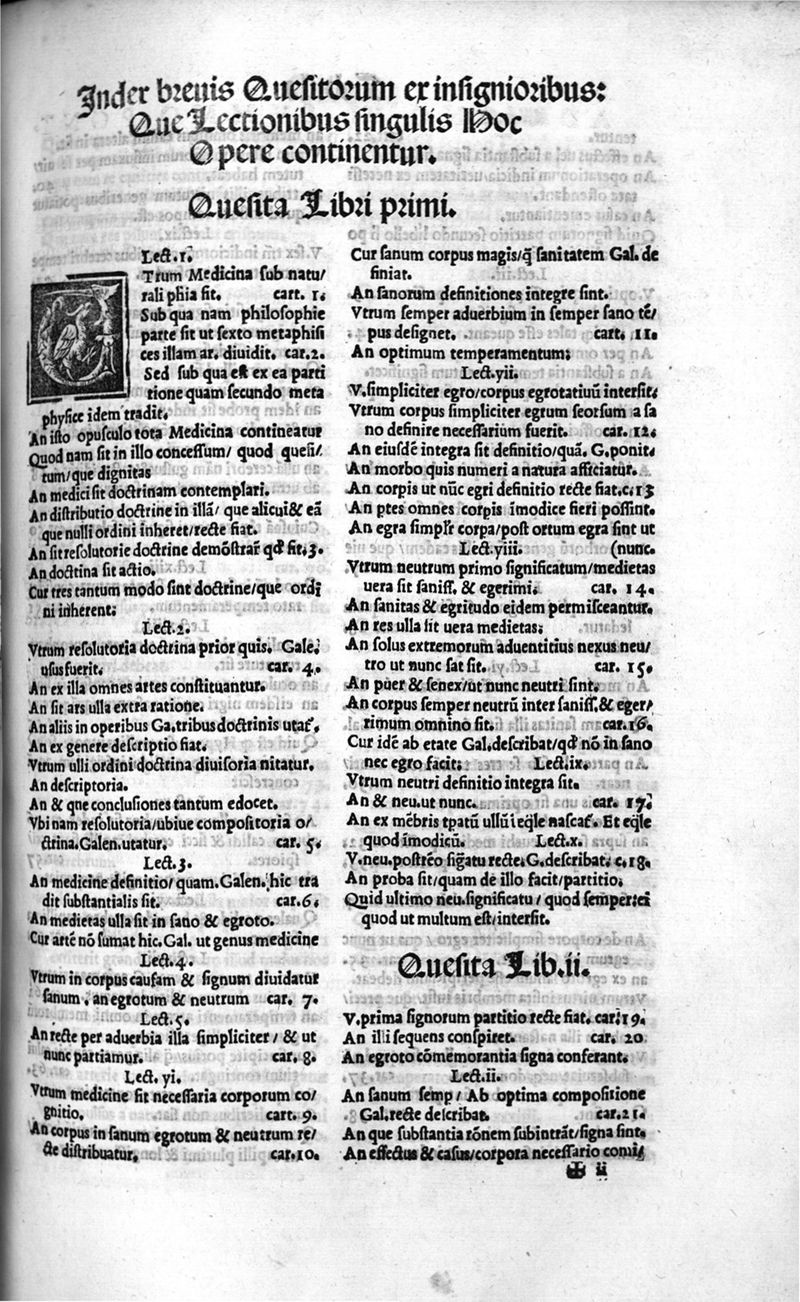 Index breuis Quesitorum ex insignioribus:
Que Lectionibus singulis Hoc
Opere continentur.
Quesita Libri primi.
Lect.1.
VTrum Medicina sub natu/
rali phia sit. cart. 1.
Sub qua nam philosophie
parte sit ut sexto metaphisi
ces illam ar. diuidit. car.2.
Sed sub qua est ex ea parti
tione quam secundo meta
physice idem tradit.
An isto opusculo tota Medicina contineatur
Quod nam sit in illo concessum/ quod quesitũ/
tum/que dignitas
An medici sit doctrinam contemplari.
An distributio doctrine in illã/ que alicui& eã
que nulli ordini inheret/recte fiat.
An sit resolutorie doctrine demõstrar̃ qđ sit.3.
An doctina sit actio.
Cur tres tantum modo sint doctrine/que ordi
ni inherent:
Lect.2.
Vtrum resolutoria doctrina prior quis. Gale.
usus fuerit. car. 4.
An ex illa omnes artes constituantur.
An sit ars ulla extra ratione.
An aliis in operibus Ga. tribus doctrinis utat̃.
An ex genere descriptio fiat.
Vtrum ulli ordini doctrina diuisoria nitatur.
An descriptoria.
An & qne conclusiones tantum edocet.
Vbi nam resolutoria/ubiue compositoria o/
ctrina.Galen.utatur. car. 5.
Lect.3.
An medicine definitio/ quam.Galen. hic tra
dit substantialis sit. car.6.
An medietas ulla sit in sano & egroto.
Cur artẽ nõ sumat hic. Gal. ut genus medicine
Lect.4.
Vtrum in corpus causam & signum diuidatur
sanum. an egrotum & neutrum car. 7.
Lect.5.
An recte per aduerbia illa simpliciter/ & ut
nunc partiamur. car. 8.
Lect. yi.
Vtrum medicine sit necessaria corporum co/
gnitio. cart. 9.
An corpus in sanum egrotum & neutrum re/
cte distribuatur. car.10.
Cur sanum corpus magis/q̃ sanitatem Gal. de
finiat.
An sanorum definitiones integre sint.
Vtrum semper aduerbium in semper sano tẽ/
pus designet. cart. 11.
An optimum temperamentum:
Lect.yii.
V.simpliciter egro/corpus egrotatiuũ intersit.
Vtrum corpus simpliciter egrum seorsum a sa
no definire necessarium fuerit. car. 12.
An eiusdẽ integra sit definitio/quã. G.ponit.
An morbo quis numeri a natura afficiatur.
An corpis ut nũc egri definitio recte fiat.c.13
An ptes omnes corpis ĩmodice fieri possint.
An egra simplr̃ corpa/post ortum egra sint ut
Lect.yiii. (nunc.
Vtrum neutrum primo significatum/medietas
uera sit saniss. & egerimi. car. 14.
An sanitas & egritudo eidem permisceantur.
An res ulla sit uera medietas:
An solus extremorum aduentitius nexus neu/
tro ut nunc sat sit. car. 15.
An puer & senex/ut nunc neutri sint.
An corpus semper neutrũ inter saniss.& eger/
rimum omnino sit. car.16.
Cur idẽ ab etate Gal.describat/qđ nõ in sano
nec egro facit: Lect.ix.
Vtrum neutri definitio integra sit.
An & neu.ut nunc. car. 17.
An ex mẽbris tpatũ ullũ ĩ eq̃le nascat̃. Et eq̃le
quod ĩmodicũ. Lect.x.
V.neu.postrẽo sig̃atu recte.G.describat. c.18.
An proba sit/quam de illo facit/partitio.
Quid ultimo neu.significatu / quod semper:ei
quod ut multum est/intersit.
Quesita Lib.ii.
V.prima signorum partitio recte fiat. car.19.
An illi sequens conspiret. car. 20
An egroto cõmemorantia signa conferant.
Lect.ii.
An sanum semp/ Ab optima compositione
Gal.recte describat. car.21.
An que substantia rõnem subintrãt/signa sint.
An effectus & casus/corpora necessario comi/
✠ ii